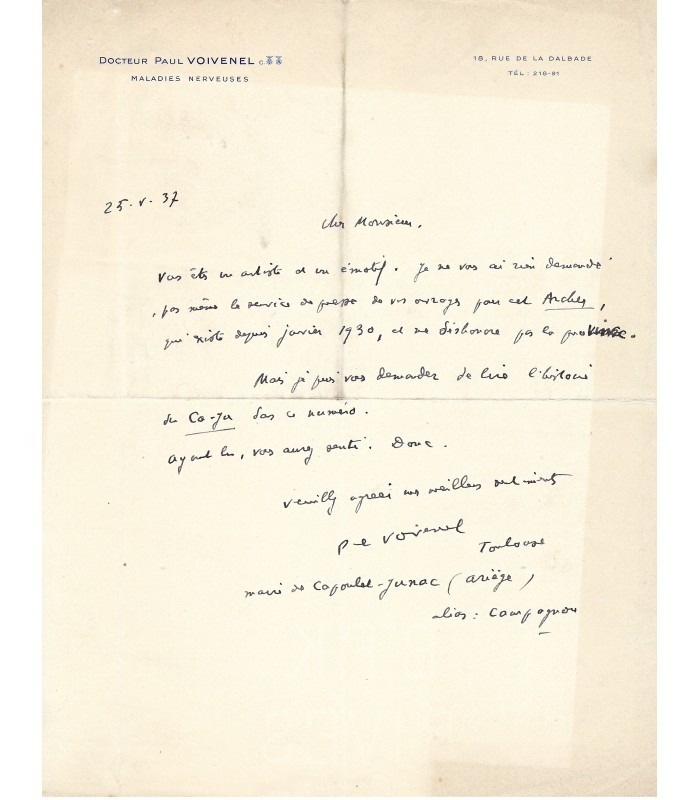 DOCTEUR PAUL VOIVENEL C.
MALADIES NERVEUSES
18, RUE DE LA DALBADE
TÉL : 216-81
25. V. 37
Cher Monsieur.
Vous êtes un artiste et un émotif. Je ne vous ai rien demandé
, pas même le service de presse de vos ouvrages pour cet Archer,
qui existe depuis janvier 1930, et ne déshonore pas la province.
Mais je puis vous demander de lire l'histoire
du Ca-Ju dans ce numéro.
Ayant lu, vous aurez senti. Donc.
Veuillez agréer mes meilleurs sentiments
P. Voivenel
Toulouse
maire de Capoulet-Junac (Ariège)
alias : Campagnou